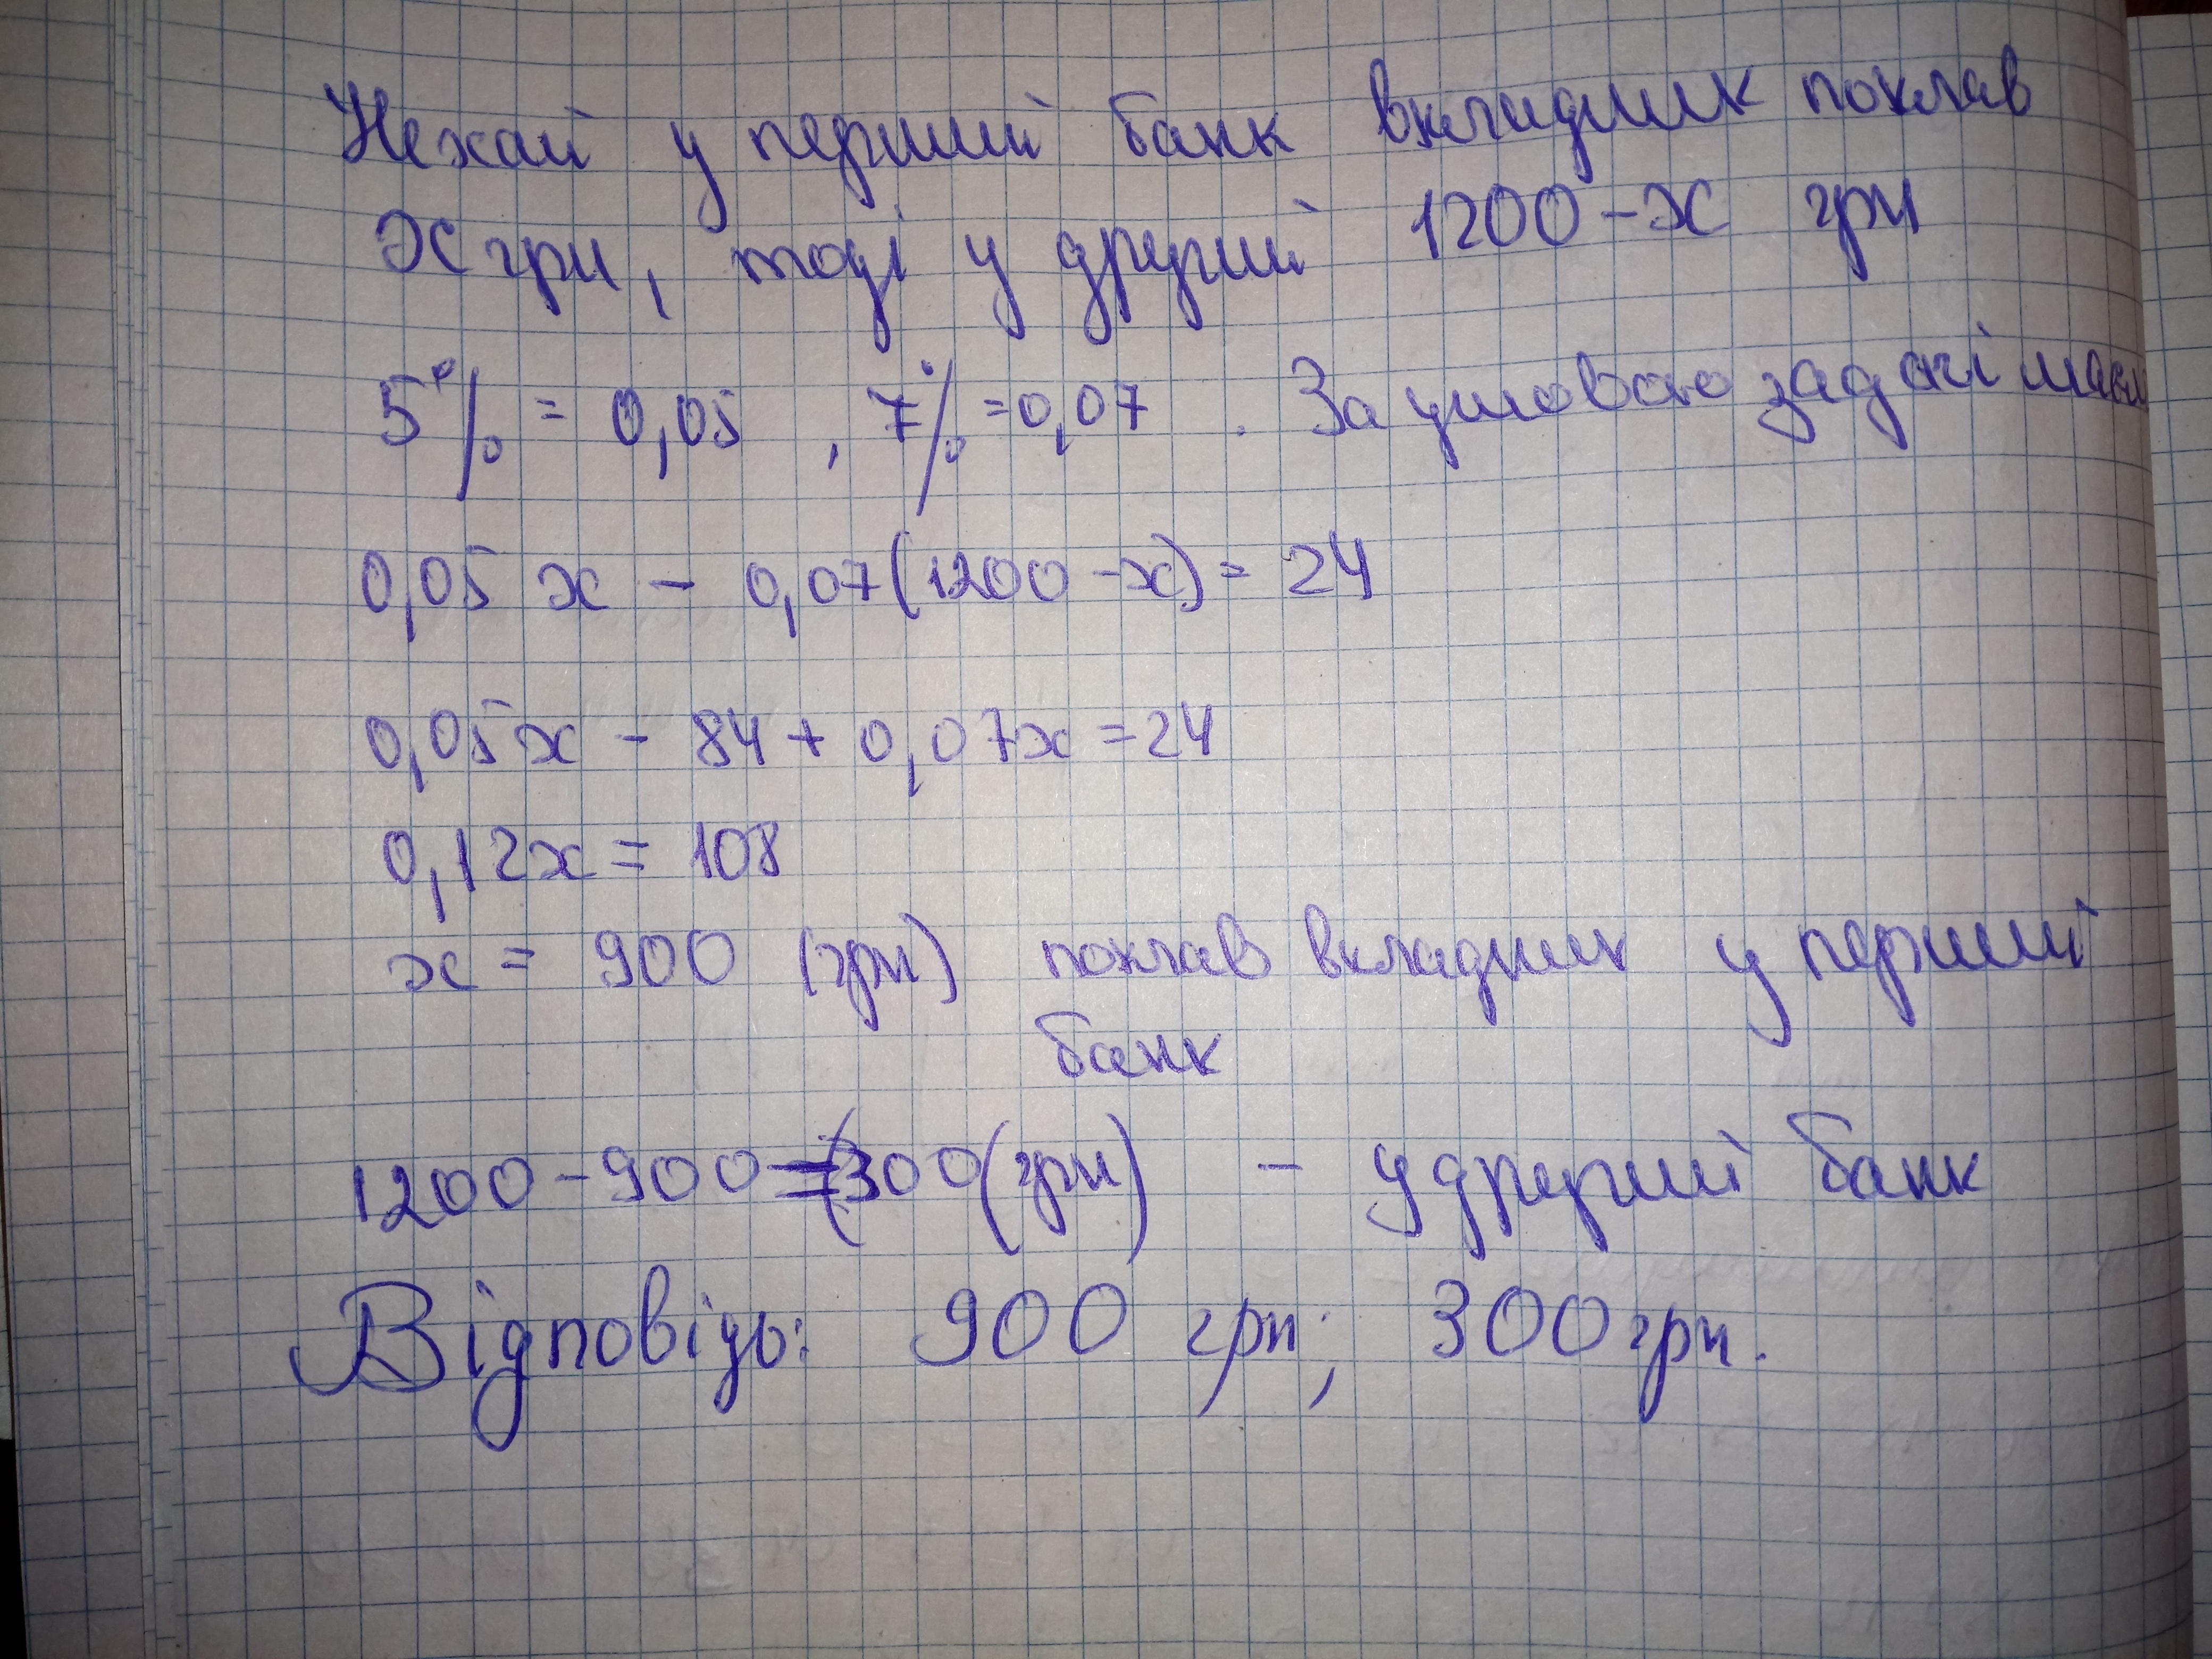 Нехай у перший банк вкладник поклав
x грн, тоді у другий 1200 - x грн
5% = 0,05 , 7% = 0,07 . За умовою задачі маєм
0,05 x - 0,07(1200 - x) = 24
0,05x - 84 + 0,07x = 24
0,12x = 108
x = 900 (грн) поклав вкладник у перший
банк
1200 - 900 = 300 (грн) - у другий банк
Відповідь: 900 грн; 300 грн.